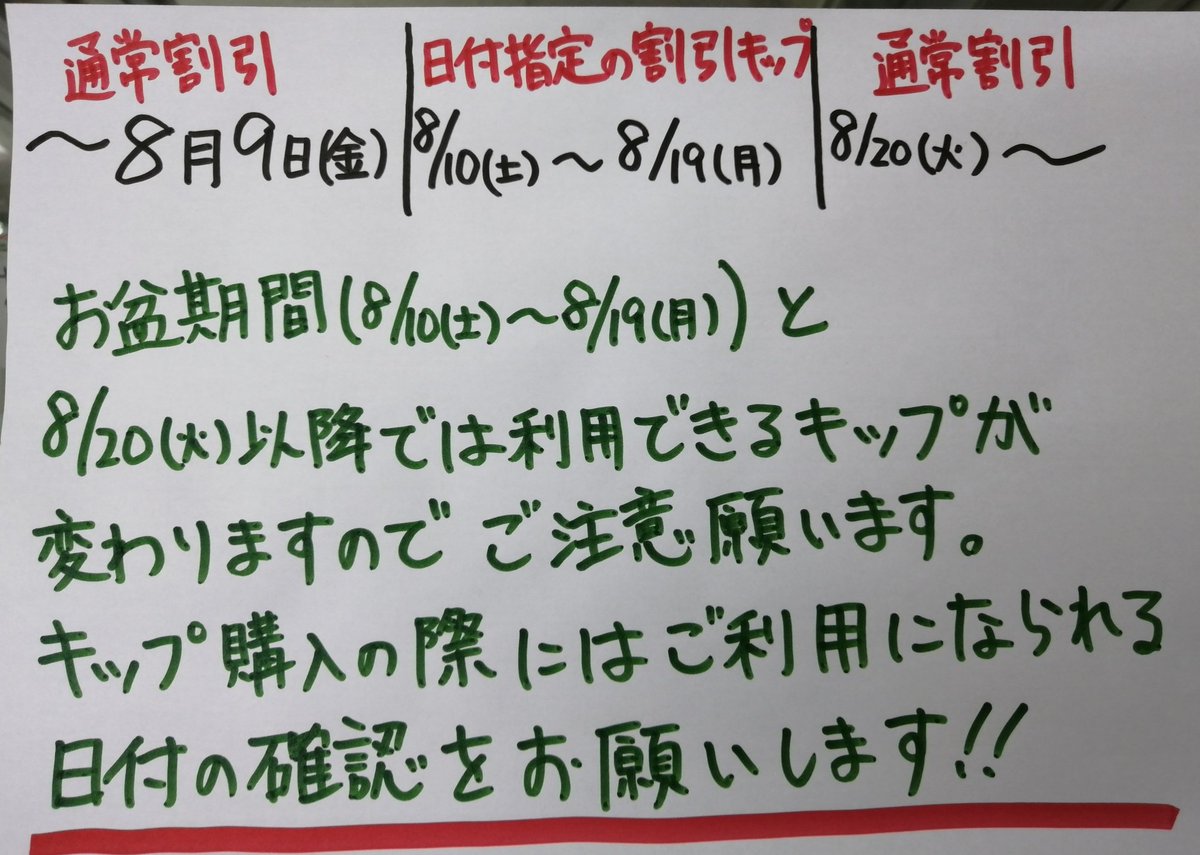 通常割引 日付指定の割引キップ 通常割引
～8月9日(金) 8/10(土)～8/19(月) 8/20(火)～
お盆期間(8/10(土)～8/19(月))と
8/20(火)以降では利用できるキップが
変わりますのでご注意願います。
キップ購入の際にはご利用になられる
日付の確認をお願いします!!